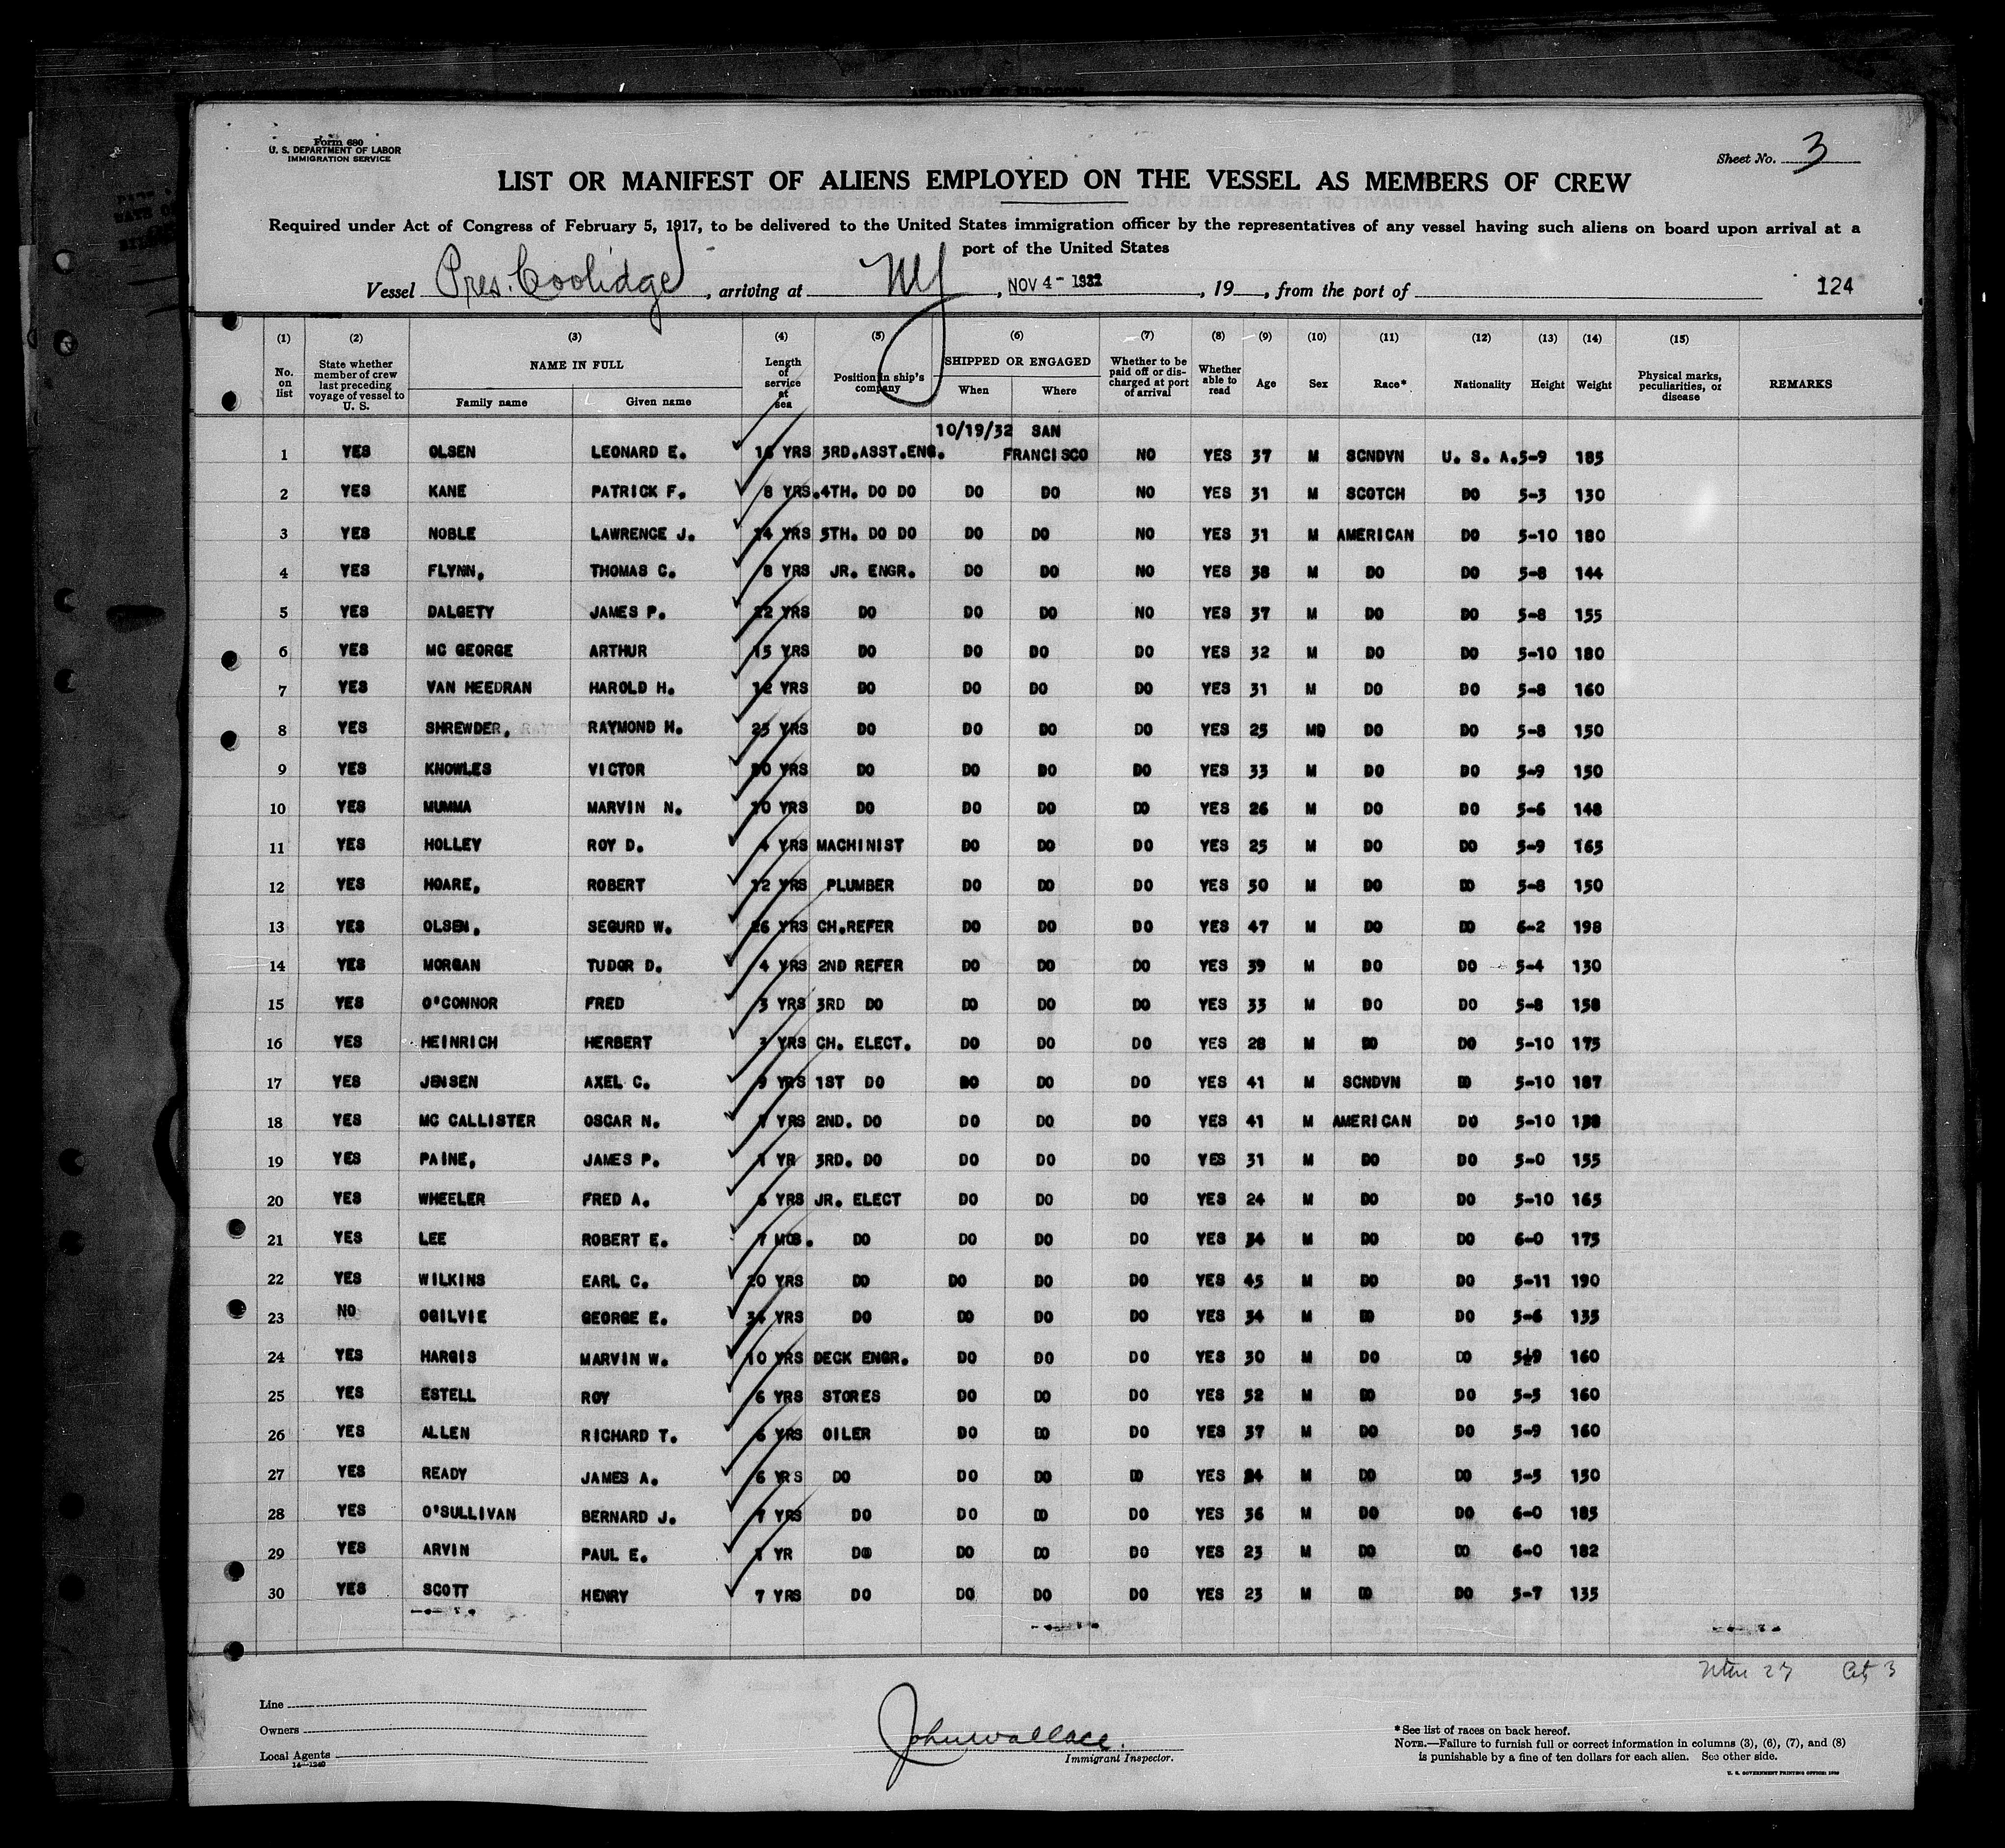 Form 680
U. S. DEPARTMENT OF LABOR
IMMIGRATION SERVICE
Sheet No. 3
LIST OR MANIFEST OF ALIENS EMPLOYED ON THE VESSEL AS MEMBERS OF CREW
Required under Act of Congress of February 5, 1917, to be delivered to the United States immigration officer by the representatives of any vessel having such aliens on board upon arrival at a
port of the United States
Vessel Pres. Coolidge, arriving at NY, NOV 4 - 1932, 19, from the port of 124
(1) (2) (3) (4) (5) (6) (7) (8) (9) (10) (11) (12) (13) (14) (15)
No. on list State whether member of crew last preceding voyage of vessel to U. S. NAME IN FULL Family name Given name Length of service at sea Position in ship's company SHIPPED OR ENGAGED When Where Whether to be paid off or discharged at port of arrival Whether able to read Age Sex Race* Nationality Height Weight Physical marks, peculiarities, or disease REMARKS
10/19/32 SAN
1 YES OLSEN LEONARD E. YRS 3RD.ASST.ENG. FRANCISCO NO YES 37 M SCNDVN U. S. A. 5-9 185
2 YES KANE PATRICK F. 8 YRS. 4TH. DO DO DO DO NO YES 31 M SCOTCH DO 5-3 130
3 YES NOBLE LAWRENCE J. 14 YRS 5TH. DO DO DO DO NO YES 31 M AMERICAN DO 5-10 180
4 YES FLYNN, THOMAS C. 8 YRS JR. ENGR. DO DO NO YES 38 M DO DO 5-8 144
5 YES DALGETY JAMES P. 22 YRS DO DO DO NO YES 37 M DO DO 5-8 155
6 YES MC GEORGE ARTHUR 15 YRS DO DO DO DO YES 32 M DO DO 5-10 180
7 YES VAN HEEDRAN HAROLD H. 12 YRS DO DO DO DO YES 31 M DO DO 5-8 160
8 YES SHREWDER, RAYMOND H. 25 YRS DO DO DO DO YES 25 M DO DO 5-8 150
9 YES KNOWLES VICTOR YRS DO DO DO DO YES 33 M DO DO 5-9 150
10 YES MUMMA MARVIN N. 10 YRS DO DO DO DO YES 26 M DO DO 5-6 148
11 YES HOLLEY ROY D. 4 YRS MACHINIST DO DO DO YES 25 M DO DO 5-9 165
12 YES HOARE, ROBERT 12 YRS PLUMBER DO DO DO YES 50 M DO DO 5-8 150
13 YES OLSEN, SEGURD W. 26 YRS CH.REFER DO DO DO YES 47 M DO DO 6-2 198
14 YES MORGAN TUDOR D. 4 YRS 2ND REFER DO DO DO YES 39 M DO DO 5-4 130
15 YES O'CONNOR FRED 3 YRS 3RD DO DO DO DO YES 33 M DO DO 5-8 158
16 YES HEINRICH HERBERT YRS CH. ELECT. DO DO DO YES 28 M DO DO 5-10 175
17 YES JENSEN AXEL C. 9 YRS 1ST DO DO DO DO YES 41 M SCNDVN DO 5-10 187
18 YES MC CALLISTER OSCAR N. YRS 2ND. DO DO DO DO YES 41 M AMERICAN DO 5-10
19 YES PAINE, JAMES P. 1 YR 3RD. DO DO DO DO YES 31 M DO DO 5-0 155
20 YES WHEELER FRED A. 6 YRS JR. ELECT DO DO DO YES 24 M DO DO 5-10 165
21 YES LEE ROBERT E. 7 MOS. DO DO DO DO YES 34 M DO DO 6-0 175
22 YES WILKINS EARL C. 20 YRS DO DO DO DO YES 45 M DO DO 5-11 190
23 NO OGILVIE GEORGE E. YRS DO DO DO DO YES 34 M DO DO 5-6 135
24 YES HARGIS MARVIN W. 10 YRS DECK ENGR. DO DO DO YES 30 M DO DO 5-9 160
25 YES ESTELL ROY 6 YRS STORES DO DO DO YES 52 M DO DO 5-5 160
26 YES ALLEN RICHARD T. 6 YRS OILER DO DO DO YES 37 M DO DO 5-9 160
27 YES READY JAMES A. 6 YRS DO DO DO DO YES 24 M DO DO 5-5 150
28 YES O'SULLIVAN BERNARD J. YRS DO DO DO DO YES 36 M DO DO 6-0 185
29 YES ARVIN PAUL E. 1 YR DO DO DO DO YES 23 M DO DO 6-0 182
30 YES SCOTT HENRY 7 YRS DO DO DO DO YES 23 M DO DO 5-7 135
Line
Owners
Local Agents
14—1240
John Wallace.
Immigrant Inspector.
*See list of races on back hereof.
NOTE.—Failure to furnish full or correct information in columns (3), (6), (7), and (8)
is punishable by a fine of ten dollars for each alien. See other side.